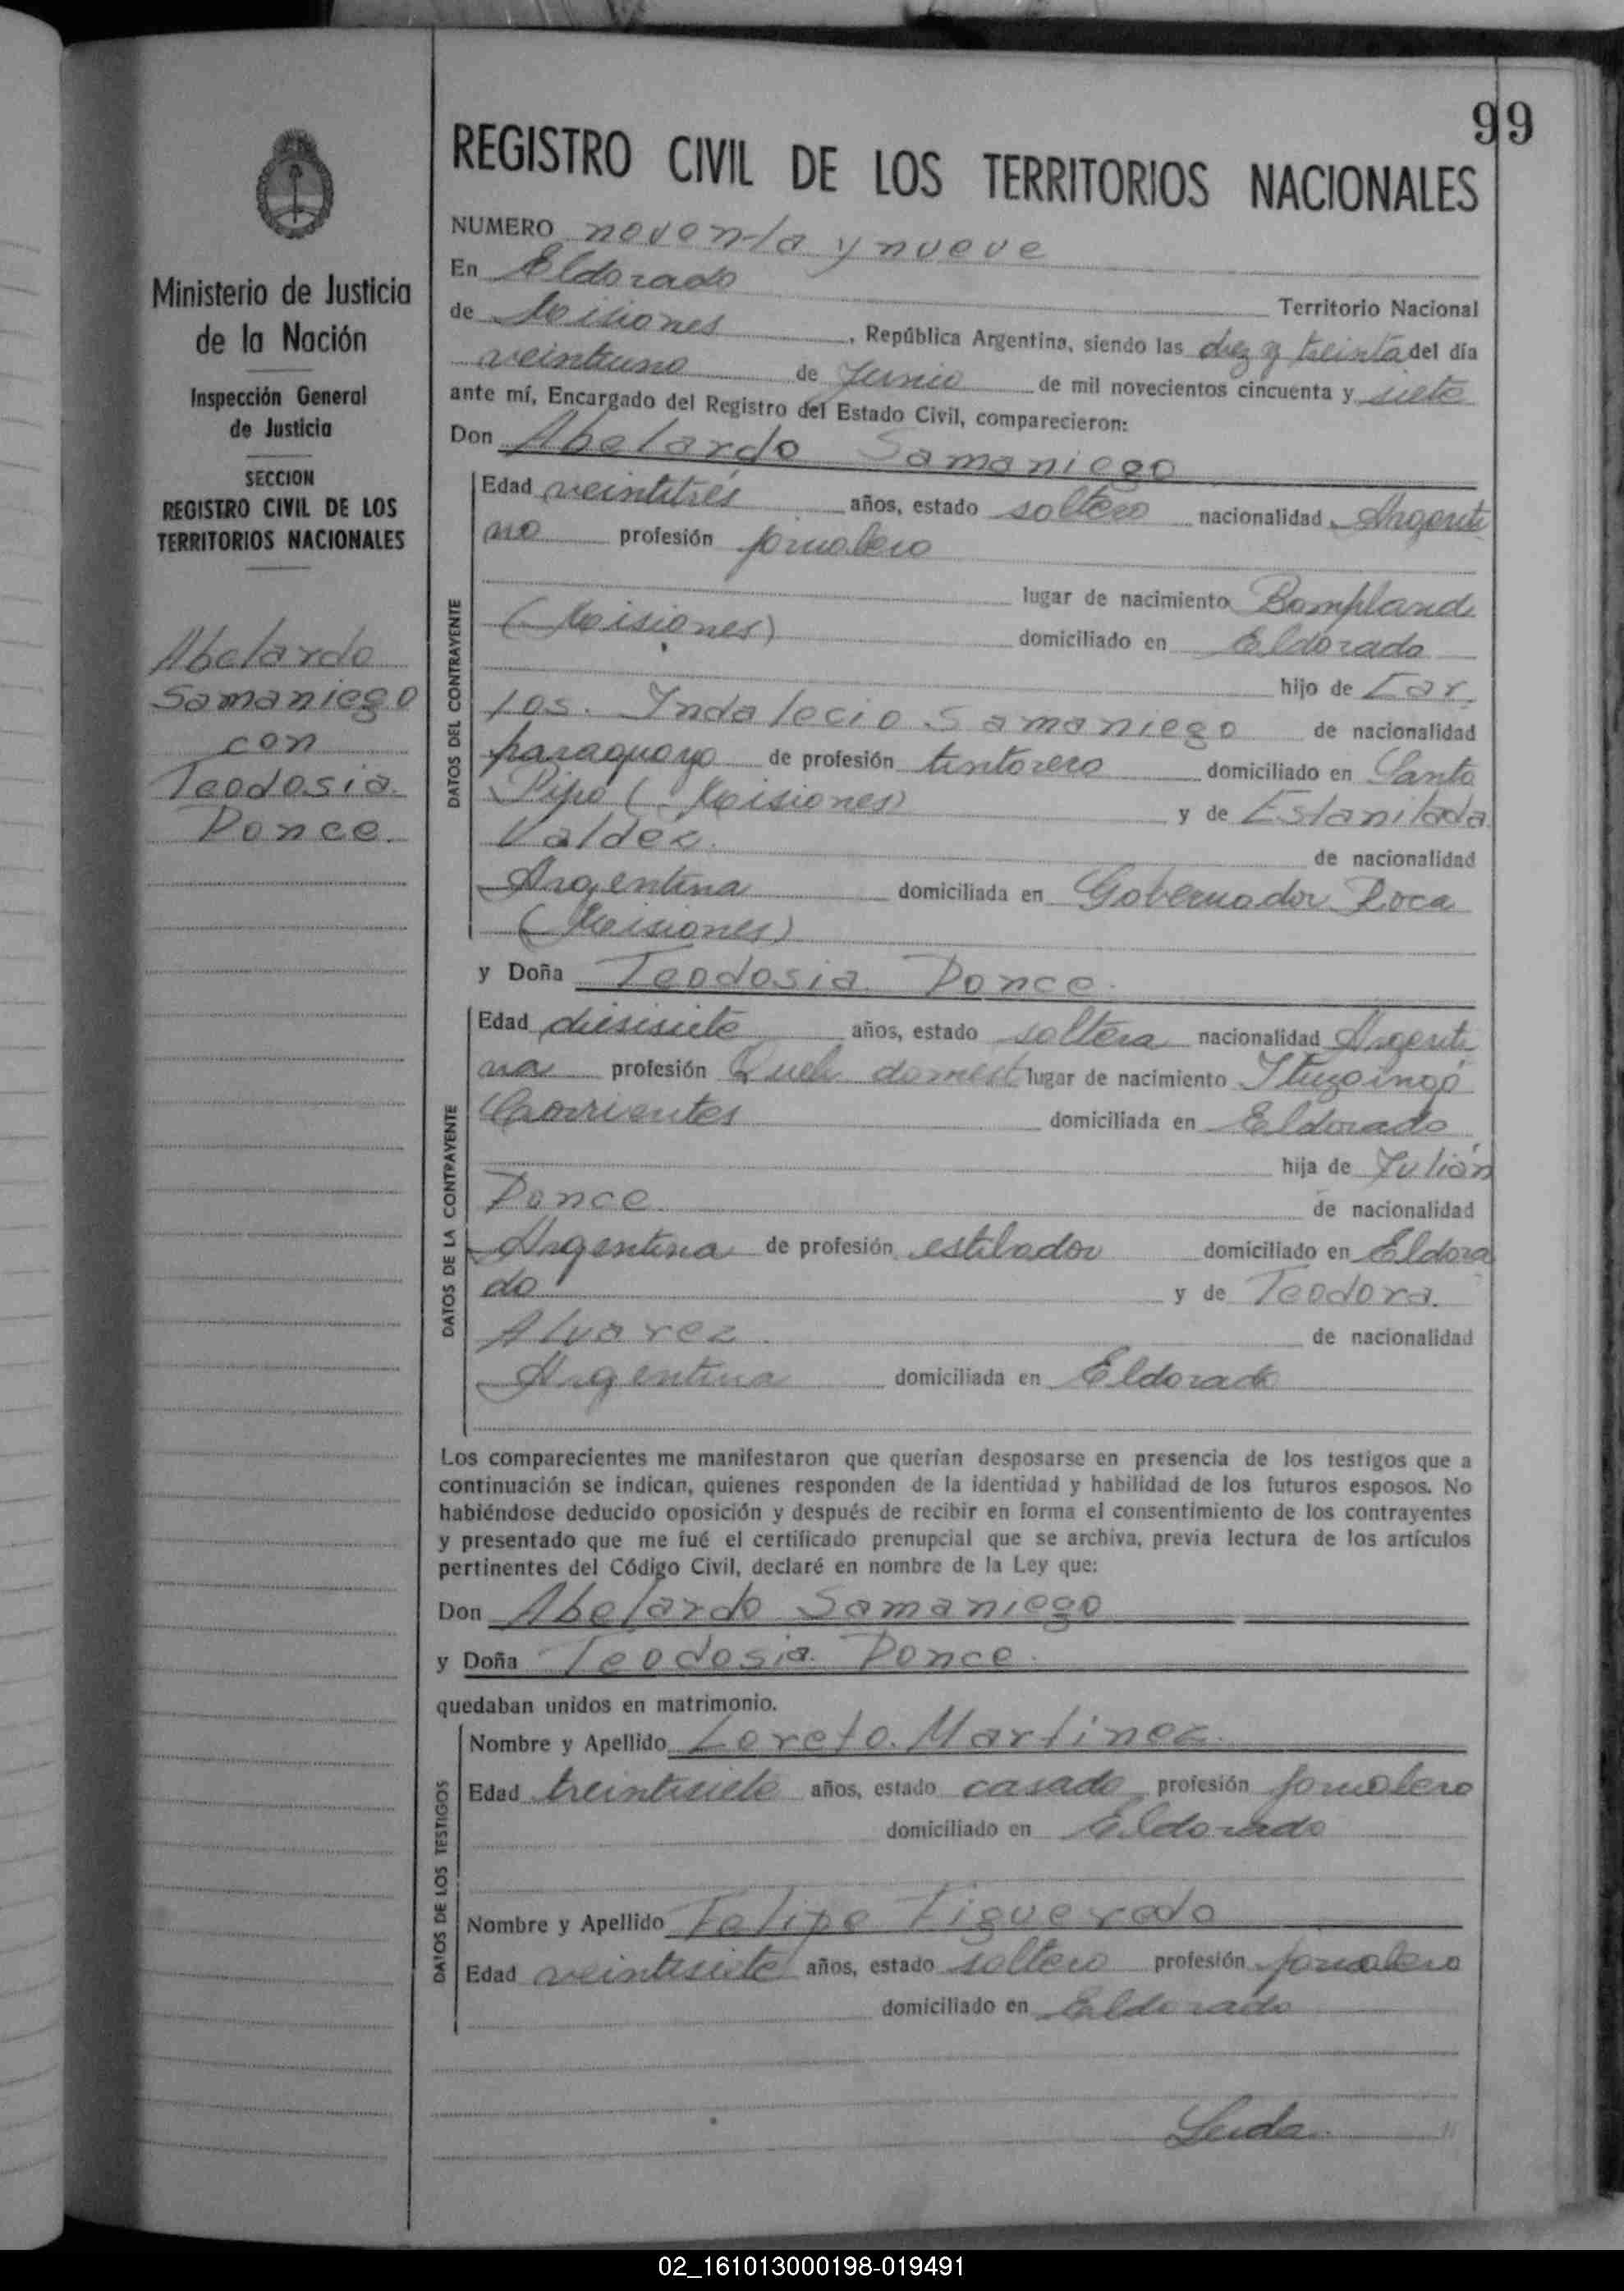 99
REGISTRO CIVIL DE LOS TERRITORIOS NACIONALES
Ministerio de Justicia
de la Nación
Inspección General
de Justicia
SECCION
REGISTRO CIVIL DE LOS
TERRITORIOS NACIONALES
Abelardo
Samaniego
con
Teodosia
Ponce.
NUMERO noventa y nueve
En Eldorado
Territorio Nacional
de Misiones, República Argentina, siendo las diez y treinta del día
veintiuno de Junio de mil novecientos cincuenta y siete
ante mí, Encargado del Registro del Estado Civil, comparecieron:
Don Abelardo Samaniego
DATOS DEL CONTRAYENTE
Edad veintitrés años, estado soltero nacionalidad Argenti
no profesión jornalero
lugar de nacimiento Bompland
(Misiones) domiciliado en Eldorado
hijo de Car
los Indalecio Samaniego de nacionalidad
paraguayo de profesión tintorero domiciliado en Santo
Pipo (Misiones) y de Estanilada
Valdez. de nacionalidad
Argentina domiciliada en Gobernador Roca
(Misiones)
y Doña Teodosia Ponce.
DATOS DE LA CONTRAYENTE
Edad diesisiete años, estado soltera nacionalidad Argenti
na profesión Queh domést lugar de nacimiento Ituzaingó
Corrientes domiciliada en Eldorado
hija de Julián
Ponce. de nacionalidad
Argentina de profesión domiciliado en Eldora
do y de Teodora
Alvarez. de nacionalidad
Argentina domiciliada en Eldorado
Los comparecientes me manifestaron que querían desposarse en presencia de los testigos que a
continuación se indican, quienes responden de la identidad y habilidad de los futuros esposos. No
habiéndose deducido oposición y después de recibir en forma el consentimiento de los contrayentes
y presentado que me fué el certificado prenupcial que se archiva, previa lectura de los artículos
pertinentes del Código Civil, declaré en nombre de la Ley que:
Don Abelardo Samaniego
y Doña Teodosia Ponce.
quedaban unidos en matrimonio.
DATOS DE LOS TESTIGOS
Nombre y Apellido Loreto Martinez.
Edad treintisiete años, estado casado profesión jornalero
domiciliado en Eldorado
Nombre y Apellido Felipe Figueredo
Edad veintisiete años, estado soltero profesión jornalero
domiciliado en Eldorado
Leida
02_161013000198-019491